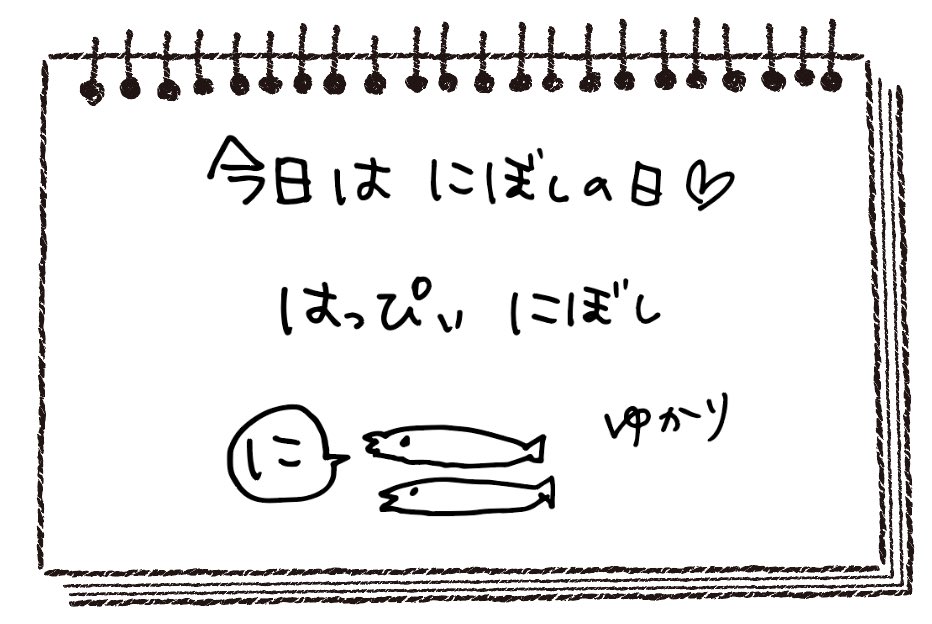 今日は にぼしの日♡
はっぴぃ にぼし
に
ゆかり